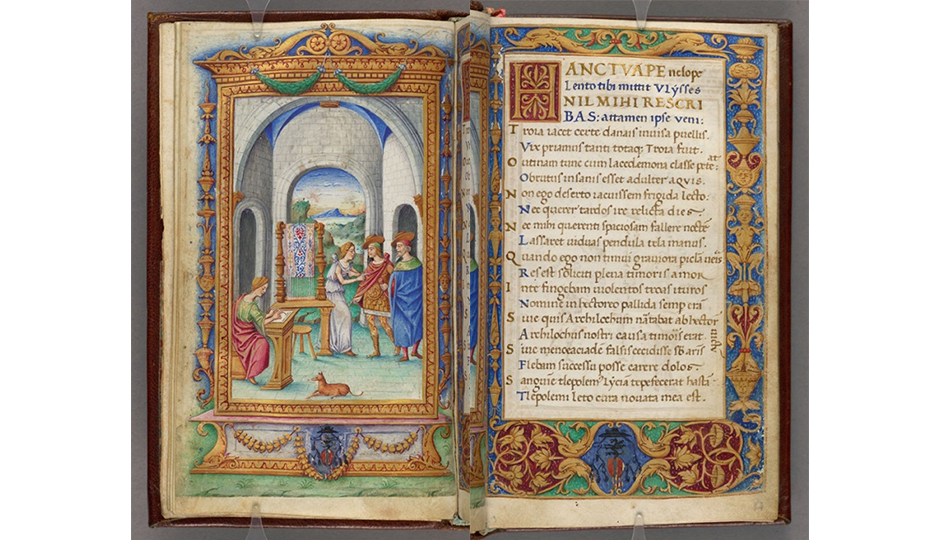 HANC TVA PEnelope
Lento tibi mittit Vlysses
NIL MIHI RESCRI
BAS: attamen ipse veni:
Troia iacet certe danais inuisa puellis.
Vix priamus tanti totaq; Troia fuit.
O utinam tunc cum lacedemona classe peteat
Obrutus insanis esset adulter aquis.
Non ego deserto iacuissem frigida lecto:
Nec querer tardos ire relicta dies
Nec mihi querenti spaciosam fallere nocte
Lassaret viduas pendula tela manus.
Quando ego non timui grauiora picla ueris
Res est soliciti plena timoris amor
In te fingebam uiolentos troas ituros
Nomine in hectoreo pallida semp eram
Siue quis Archilochum narabat ab hector
Archilochus nostri causa timoris erat
Siue menoeciade falsis cecidisse sb aris
Flebam successu posse carere dolos.
Sanguine tlepolem Lycia tepefecerat hasta
Tlepolemi leto cura nouata mea est.